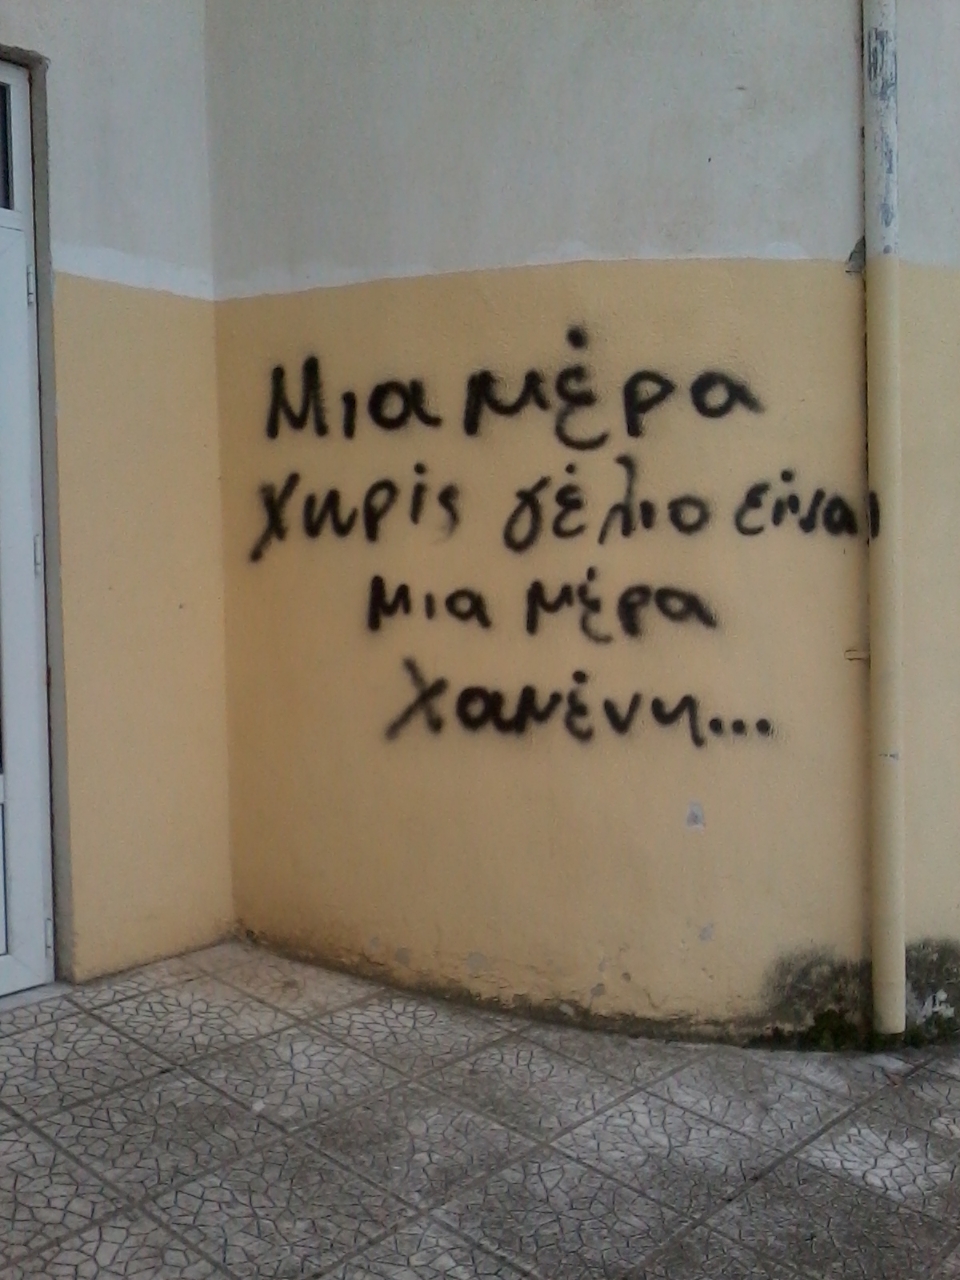 Μια μέρα
χωρίς γέλιο είναι
μια μέρα
χαμένη...